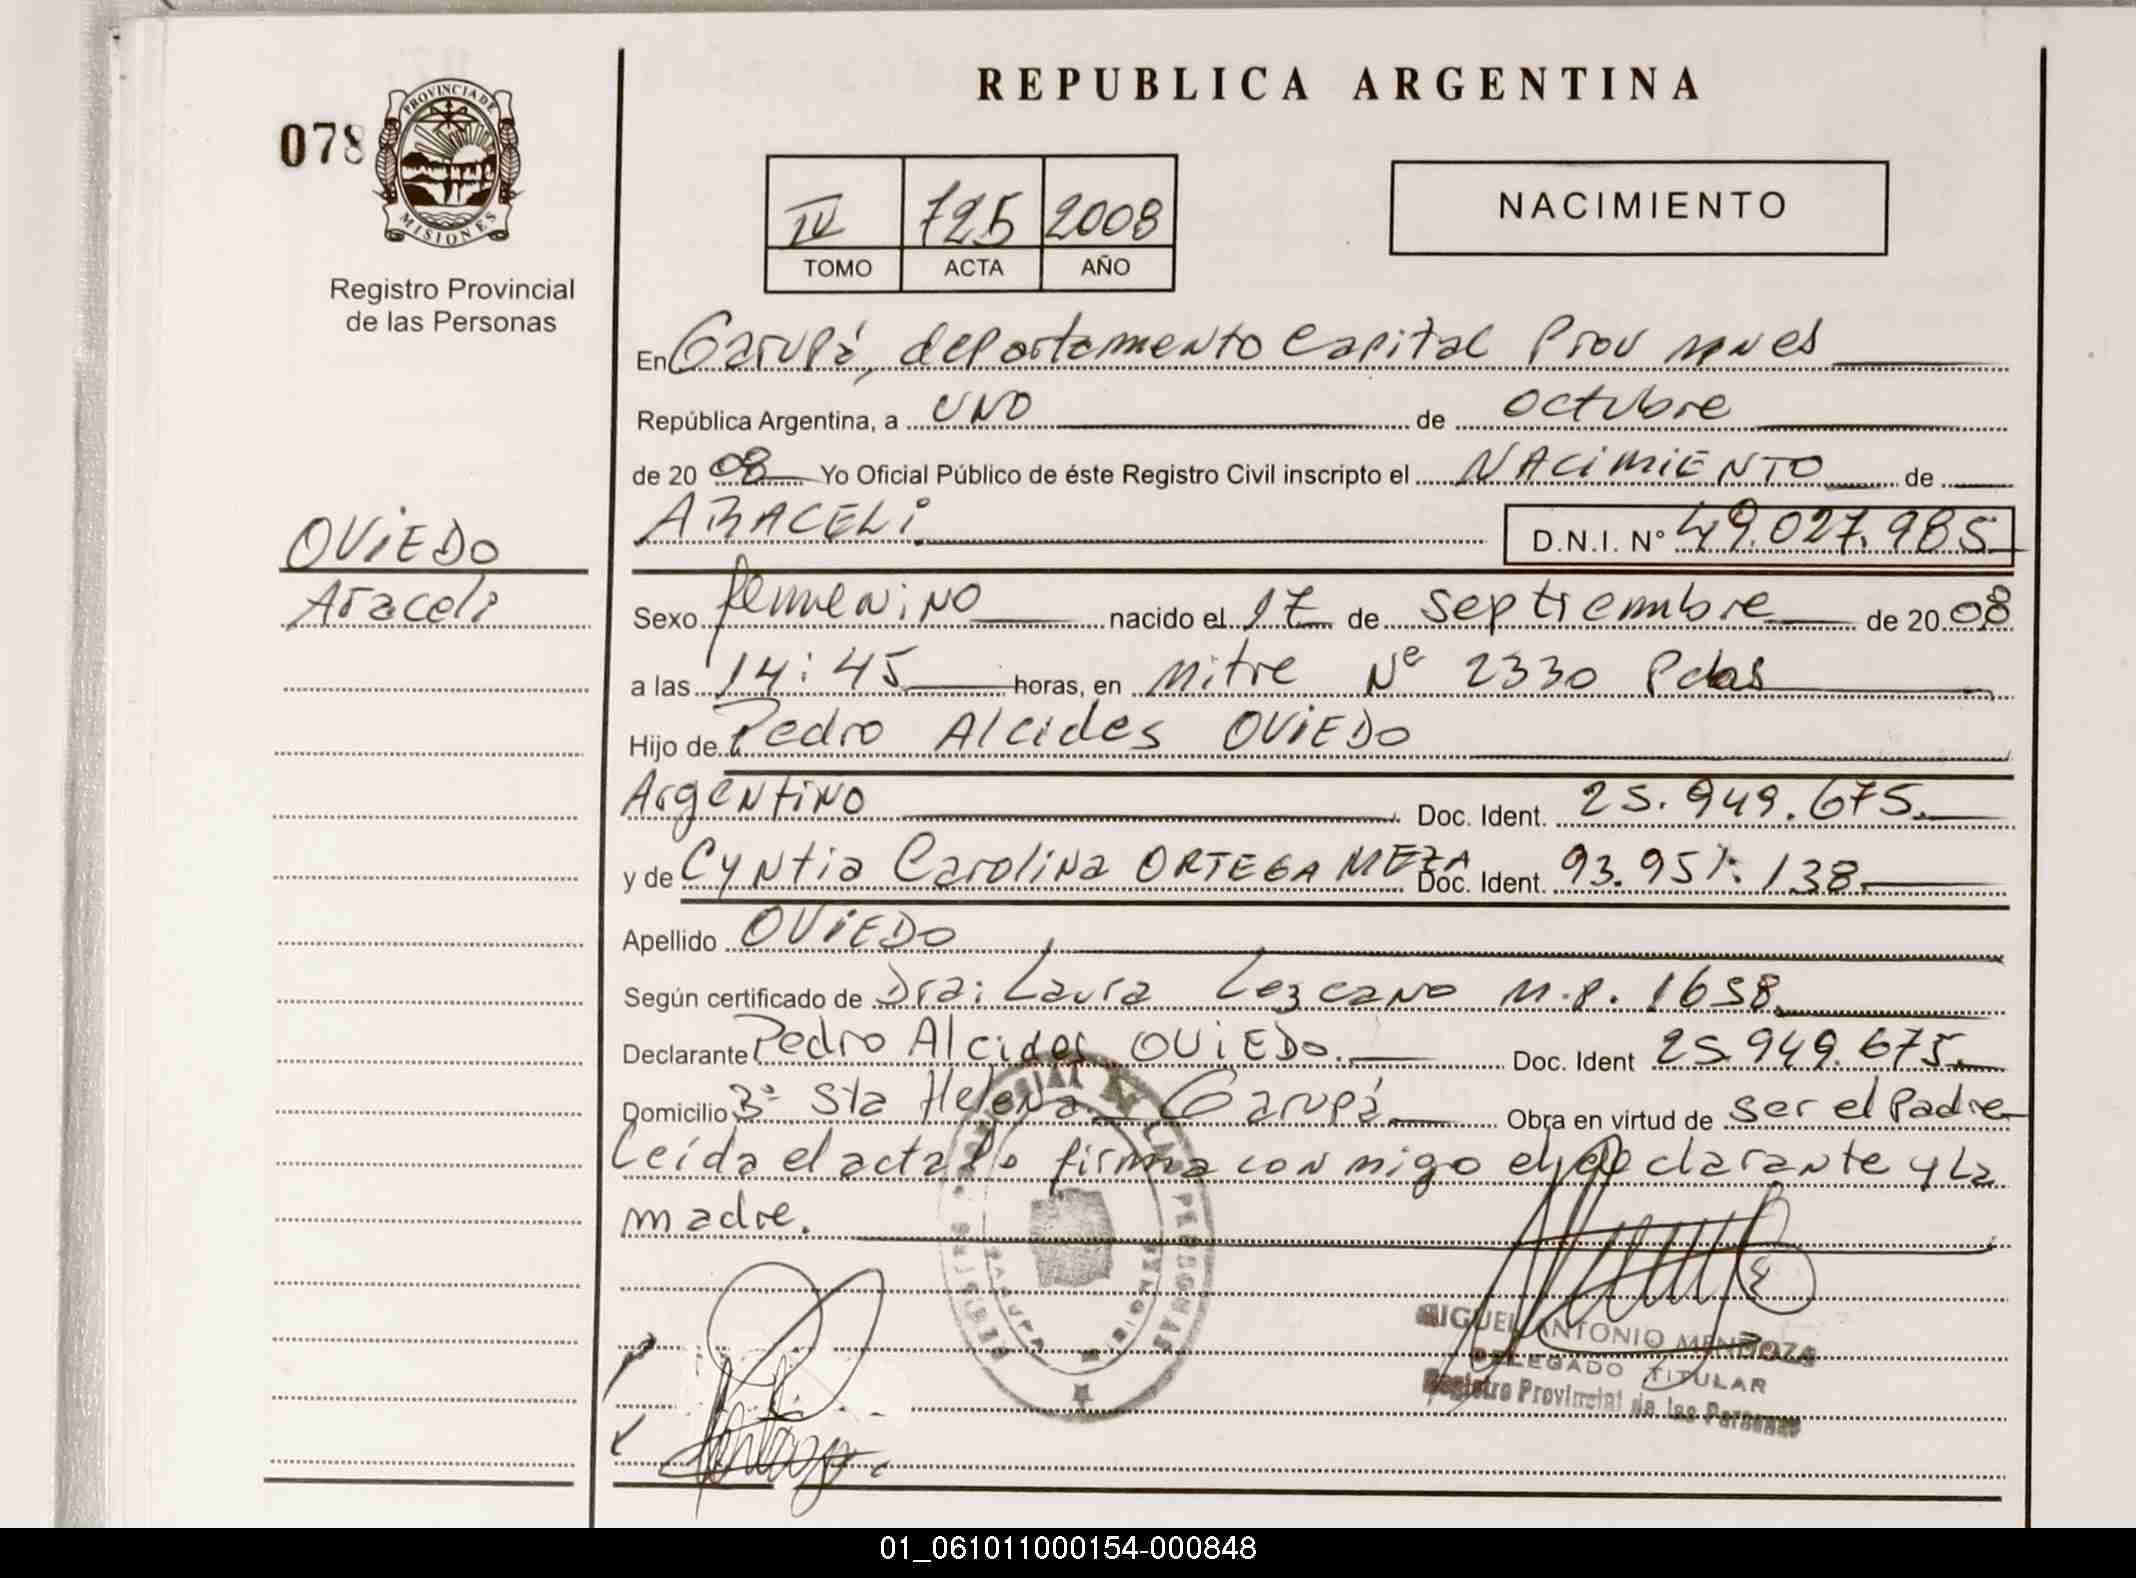 REPUBLICA ARGENTINA
078
PROVINCIA DE
MISIONES
Registro Provincial
de las Personas
IV 725 2008
TOMO ACTA AÑO
NACIMIENTO
En Garupá, departamento Capital Prov mnes
República Argentina, a UNO de octubre
de 20 08 Yo Oficial Público de éste Registro Civil inscripto el NACIMIENTO de
OVIEDO
Araceli
ARACELI D.N.I. N° 49.027.985
Sexo femenino nacido el 17 de septiembre de 20 08
a las 14:45 horas, en Mitre Nº 2330 Pdas
Hijo de Pedro Alcides OVIEDO
Argentino Doc. Ident. 25.949.675.
y de Cyntia Carolina ORTEGA MEZA Doc. Ident. 93.951.138
Apellido OVIEDO
Según certificado de Dra: Laura Lezcano M.P. 1658
Declarante Pedro Alcides OVIEDO. Doc. Ident 25.949.675
Domicilio Bº Sta Helena Garupá Obra en virtud de ser el Padre
Leída el acta la firma con migo el declarante y La
madre.
MIGUEL ANTONIO MENDOZA
DELEGADO TITULAR
Registro Provincial de las Personas
01_061011000154-000848